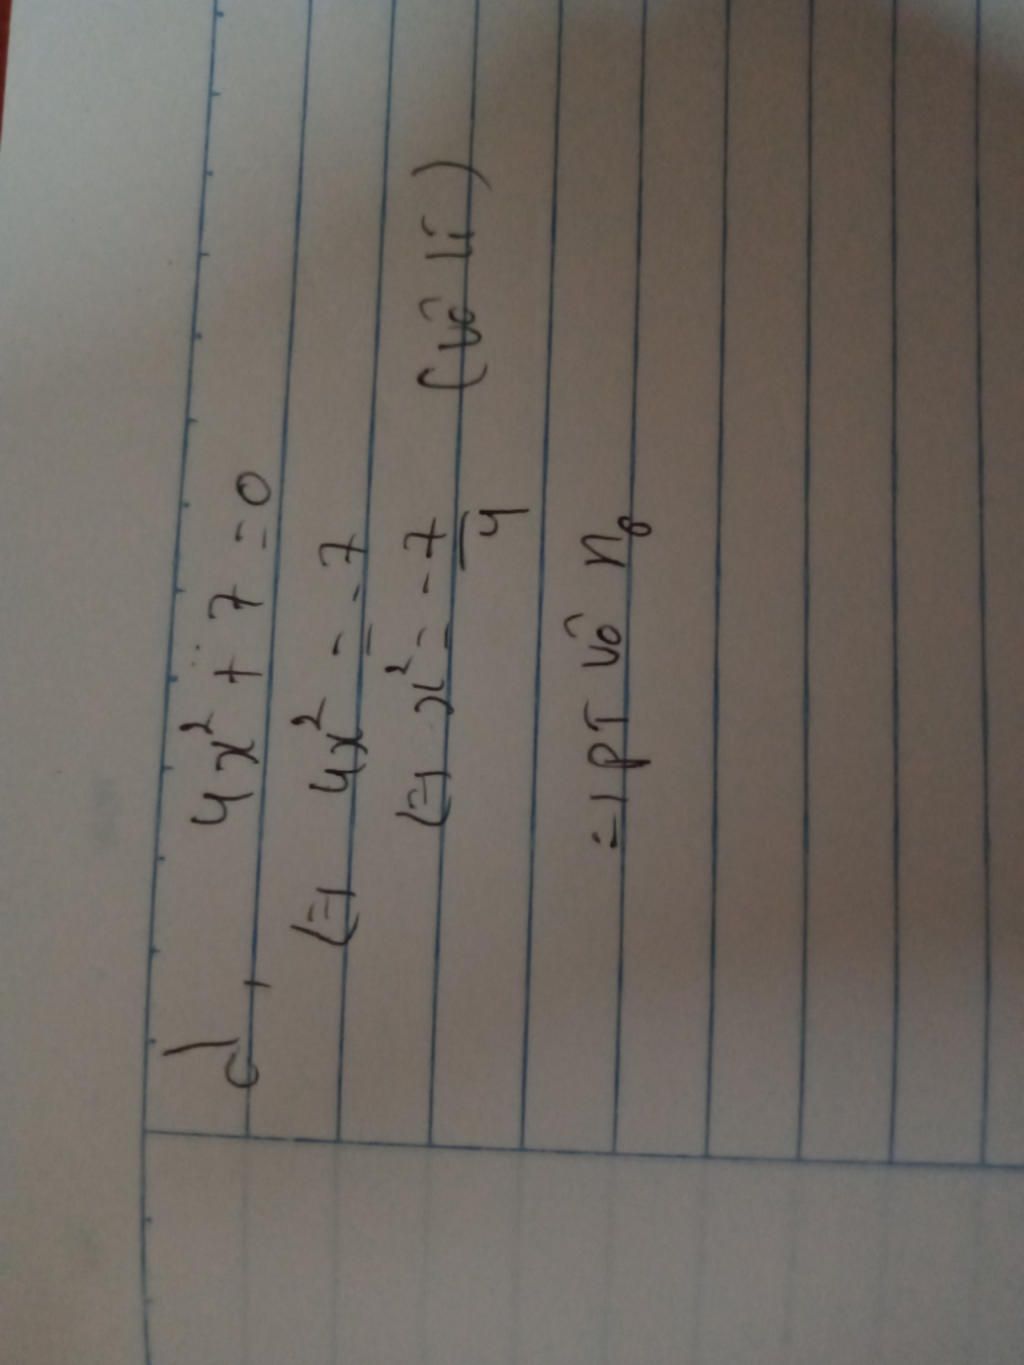 d, 4x² + 7 = 0
(=) 4x² = -7
(=) x² = -7/4 (vô lí)
=) PT vô no